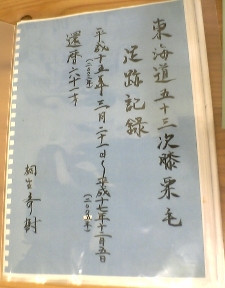 東海道五十三次膝栗毛
足跡記録
平成十五年三月二十一日〜平成十七年十二月五日
(二〇〇三年)
(二〇〇五年)
還暦六十一才